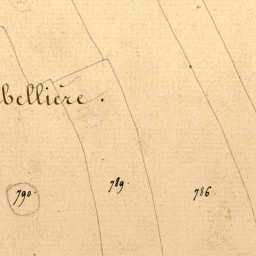 bellière.
790
789.
786